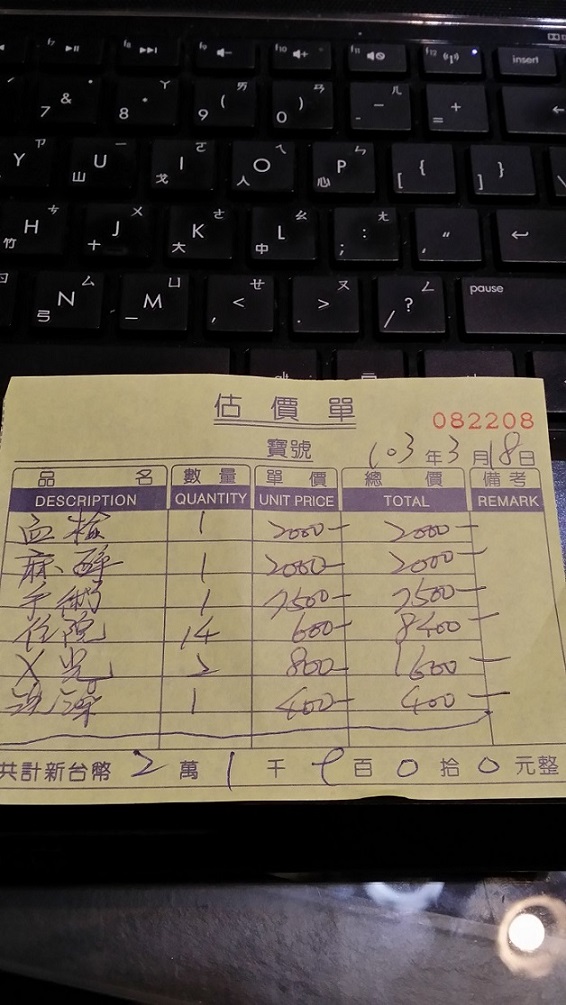 f7 f8 f9 f10 f11 f12 insert
& 7 * 8 ㄚ ( 9 ㄞ ) 0 ㄢ - ㄦ + =
Y ㄗ U 山 ㄧ I 戈 ㄛ O 人 ㄟ P 心 ㄣ { [ } ]
H 竹 ㄘ J 十 ㄨ K 大 ㄜ L 中 ㄠ : ; ㄤ " ,
N 弓 ㄙ M ㄩ < , ㄝ > . ㄡ ? / ㄥ pause
alt
估價單
082208
寶號 103年3月18日
品名 數量 單價 總價 備考
DESCRIPTION QUANTITY UNIT PRICE TOTAL REMARK
血檢 1 2000- 2000-
麻醉 1 2000- 2000-
手術 1 7500- 7500-
住院 14 600- 8400-
X光 2 800- 1600-
洗澡 1 400- 400-
共計新台幣 2 萬 1 千 9 百 0 拾 0 元整